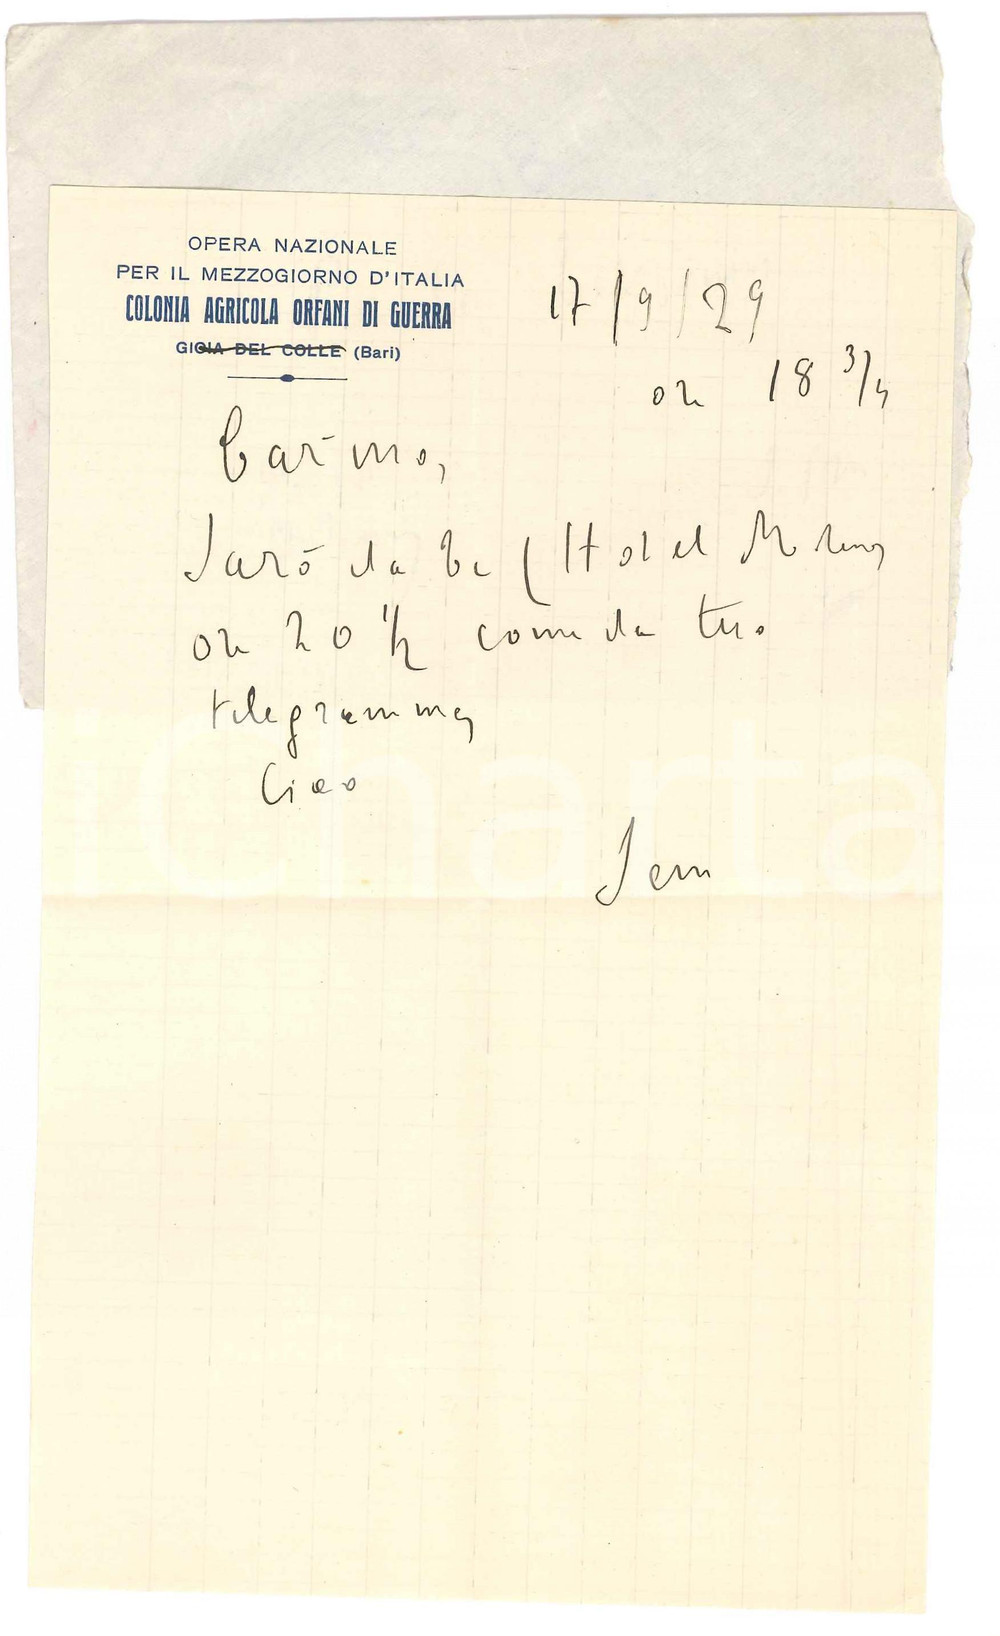 OPERA NAZIONALE
PER IL MEZZOGIORNO D'ITALIA
COLONIA AGRICOLA ORFANI DI GUERRA
GIOIA DEL COLLE (Bari)
17/9/29
ore 18 3/4
Carmo,
Sarò da te (Hotel
ore 20 1/2 come da tuo
telegramma
Ciao
iCharta